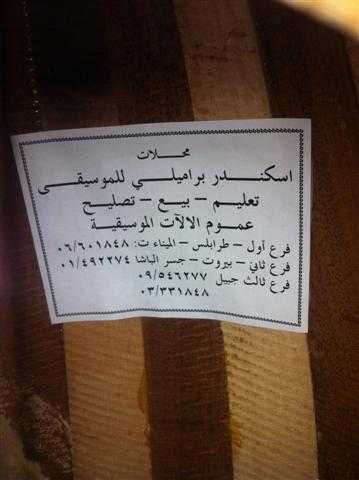 محلات
اسكندر براميلي للموسيقى
تعليم - بيع - تصليح
عموم الالات الموسيقية
فرع أول - طرابلس - الميناء ت: ٠٦/٦٠١٨٤٨
فرع ثاني - بيروت - جسر الباشا ٠١/٤٩٢٢٧٤
فرع ثالث جبيل ٠٩/٥٤٦٢٧٧
٠٣/٣٣١٨٤٨